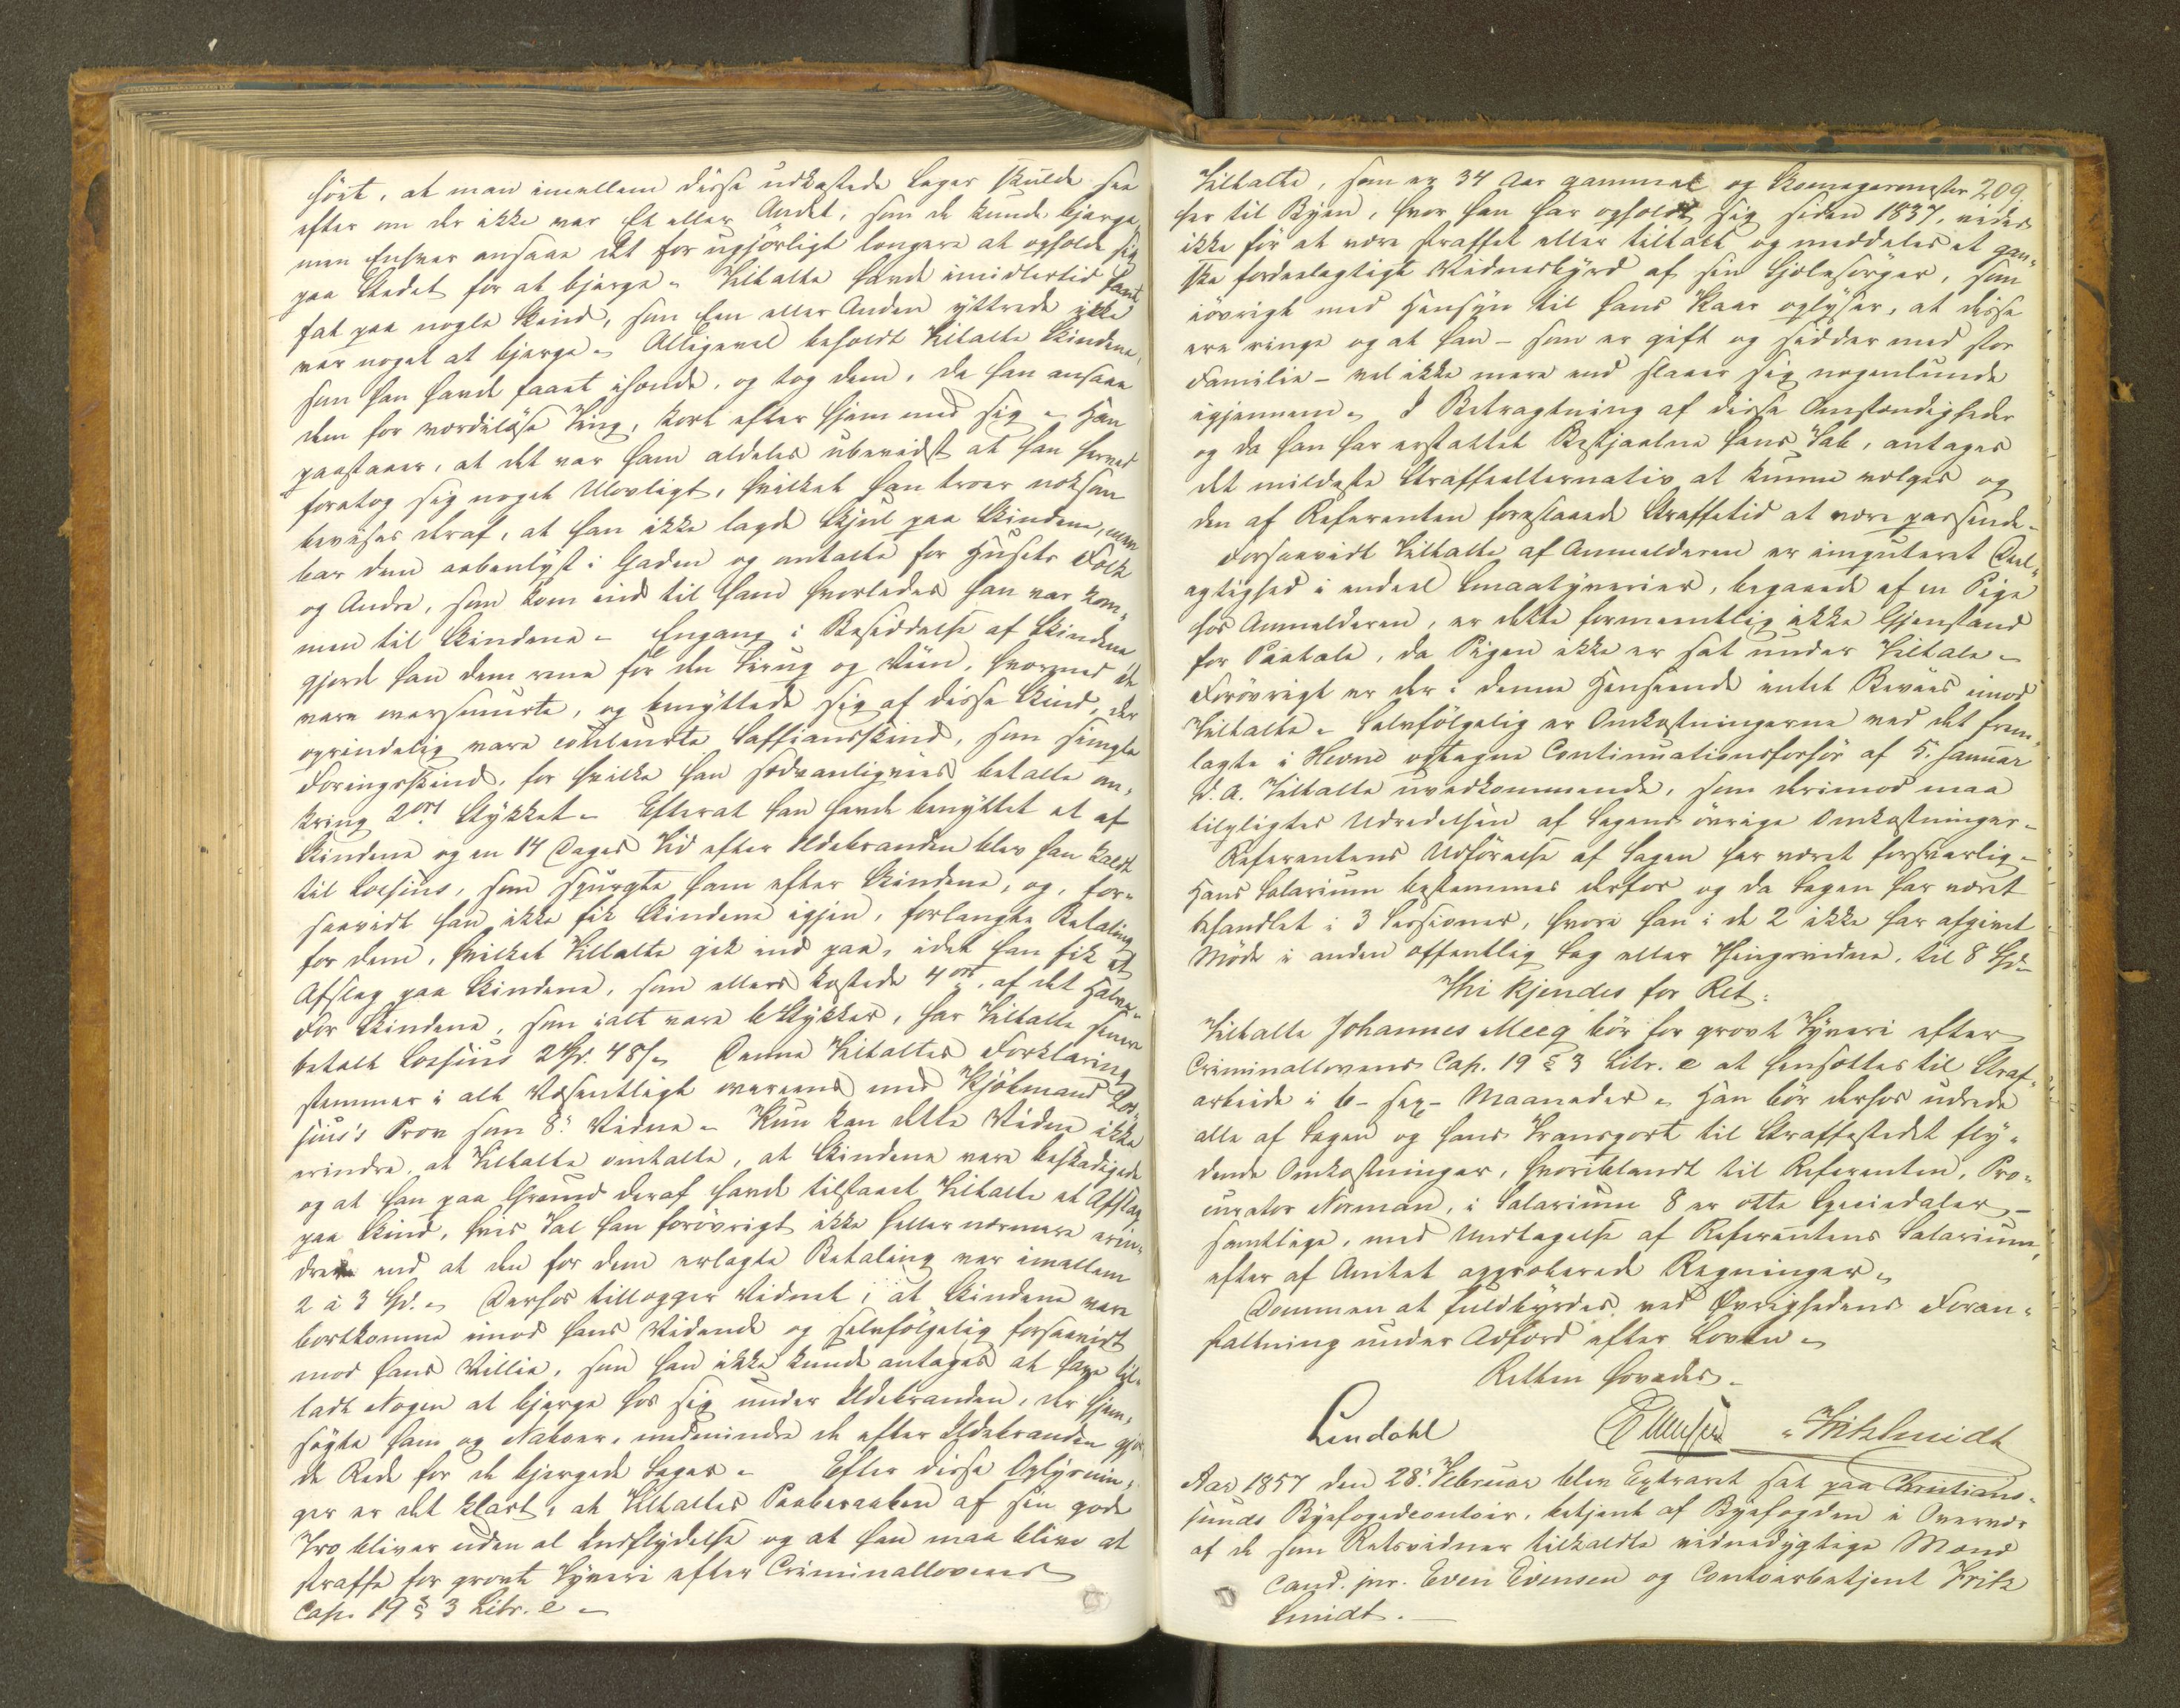 hört, at man imellem disse udkastede Sager skulde see
efter om der ikke var Et eller Andet, som de kunde bjerge,
men Enhver ansaae det for ugjörligt længere at opholde sig
paa Stedet for at bjerge. Tiltalte havde imidlertid faaet
fat paa nogle Skind, som Een eller Anden yttrede ikke
var noget at bjerge. Alligevel beholdt Tiltalte Skindene,
som han havde faaet ihænde, og tog dem, da han ansaae
dem for værdilöse Ting, kort efter hjem med sig. Han
paastaaer, at det var ham aldeles ubevidst at han herved
foretog sig noget Ulovligt, hvilket han troer noksom
bevises deraf, at han ikke lagde Skjul paa Skindene, men
bar dem aabenlyst i Gaden og omtalte for Husets Folk
og Andre, som kom ind til ham hvorledes han var kom„
men til Skindene. Engang i Besiddelse af Skindene
gjorde han dem rene för den Sirup og Viin, hvormed de
vare oversmurte, og benyttede sig af disse Skind, der
oprindelig vare couleurte Saffiansskind, som simple
Foringsskind, for hvilke han sædvanligviis betalte om„
kring 2 ort Stykket. Efterat han havde benyttet et af
Skindene og en 14 Dages Tid efter Ildebranden blev han kaldt
til Lossius, som spurgte ham efter Skindene, og, for„
saavidt han ikke fik Skindene igjen, forlangte Betaling
for dem, hvilket Tiltalte gik ind paa, idet han fik et
Afslag paa Skindene, som ellers kostede 4 ort, af det Halve.
For Skindene, som ialt vare 6 Stykker, har Tiltalte senere
betalt Lossius 2 Spd. 48 s. Denne Tiltaltes Forklaring
stemmer i alt Væsentligt overeens med Kjöbmand Los„
sius's Prov som 8de Vidne. Kun kan dette Vidne ikke
erindre, at Tiltalte omtalte, at Skindene vare beskadigede
og at han paa Grund deraf havde tilstaaet Tiltalte et Afslag
paa Skind, hvis Tal han forövrigt ikke heller nærmere erin„
drede end at den for dem erlagte Betaling var imellem
2 à 3 Spd. Derhos tillægger Vidnet, at Skindene vare
bortkomne imod hans Vidende og selvfölgelig forsaavidt
mod hans Villie, som han ikke kunde antages at have til„
ladt Nogen at bjerge hos sig under Ildebranden, der hjem„
sögte ham og Naboer, medmindre de efter Ildebranden gjor
de Rede for de bjergede Sager. Efter disse Oplysnin„
ger er det klart, at Tiltaltes Paaberaaben af sin gode
Tro bliver uden al Indflydelse og at han maa blive at
straffe for grovt Tyveri efter Criminallovens
Cap. 19 § 3 Litr. e.
209.
Tiltalte, som er 34 Aar gammel og Skomagermester
her til Byen, hvor han har opholdt sig siden 1837, vides
ikke för at være straffet eller tiltalt og meddeles et gan„
ske fordeelagtigt Vidnesbyrd af sin Sjælesörger, som
iövrigt med Hensyn til hans Kaar oplyser, at disse
ere ringe og at han – som er gift og sidder med stor
Familie – vel ikke mere end slaaer sig nogenlunde
igjennem. I Betragtning af disse Omstændigheder
og da han har erstattet Bestjaalne hans Tab, antages
det mildeste Straffealternativ at kunne vælges og
den af Referenten foreslaaede Straffetid at være passende.
Forsaavidt Tiltalte af Anmelderen er imputeret Deel„
agtighed i endeel Smaatyverier, begaaede af en Pige
hos Anmelderen, er dette formeentlig ikke Gjenstand
for Paatale, da Pigen ikke er sat under Tiltale.
Forövrigt er der i denne Henseende intet Beviis imod
Tiltalte. Selvfölgelig er Omkostningerne ved det frem„
lagte i Hevne optagne Continuationsforhör af 5. Januar
d. A. Tiltalte uvedkommende, som derimod maa
tilpligtes Udredelsen af Sagens övrige Omkostninger.
Referentens Udförelse af Sagen har været forsvarlig.
Hans Salarium bestemmes derfor og da Sagen har været
behandlet i 3 Sessioner, hvore han i de 2 ikke har afgivet
Möde i anden offentlig Sag eller Thingsvidne, til 8 Spd.
Thi kjendes for Ret:
Tiltalte Johannes Meeg bör for grovt Tyveri efter
Criminallovens Cap. 19 § 3 Litr. e at hensættes til Straf„
arbeide i 6 – sex – Maaneder. Han bör derhos udrede
alle af Sagen og hans Transport til Straffestedet fly„
dende Omkostninger, hvoriblandt til Referenten, Pro„
curator Norman, i Salarium 8 er otte Speciedaler –
samtlige, med Undtagelse af Referentens Salarium,
efter af Amtet approberede Regninger.
Dommen at fuldbyrdes ved Øvrighedens Foran„
staltning under Adfærd efter Loven.
Retten hævedes.
Lindahl EEvensen Fritz Smidt
Aar 1857 den 28. Februar blev Extraret sat paa Christians„
sunds Byefogedcontoir, betjent af Byefogden i Overvær
af de som Retsvidner tilkaldte vidnedygtige Mænd
Cand. jur. Even Evensen og Contoirbetjent Fritz
Smidt.